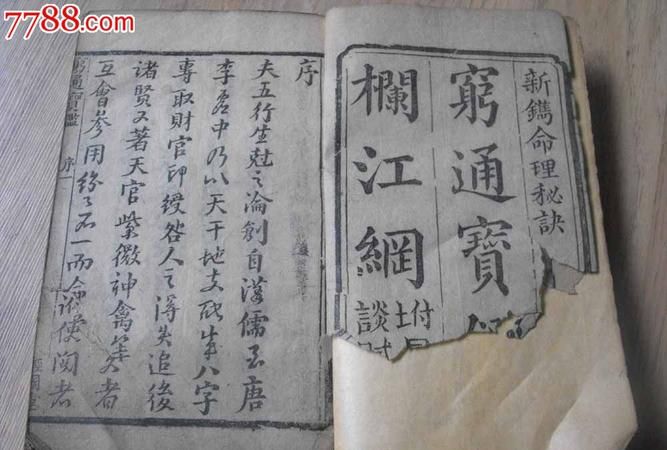 7788.com
新鐫命理秘訣
窮通寶
欄江網
附
談
序
夫五行生尅之論創自漢儒至唐
李虛中乃以天干地支配成八字
專取財官印綬人之得失追後
諸賢又著天官紫微神禽等者
互會參用紛紛不一而使閱者
通寶鑑 序 一
7788.com